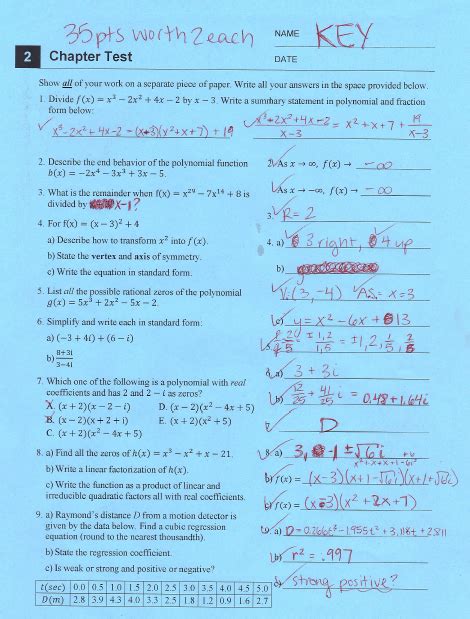 35 pts worth 2 each
NAME KEY
2 Chapter Test
DATE
Show all of your work on a separate piece of paper. Write all your answers in the space provided below.
1. Divide f(x) = x³ − 2x² + 4x − 2 by x − 3. Write a summary statement in polynomial and fraction
form below:
x³-2x²+4x-2 = (x-3)(x²+x+7) + 19
x³-2x²+4x-2 / x-3 = x² + x + 7 + 19 / x-3
2. Describe the end behavior of the polynomial function
b(x) = −2x⁴ − 3x³ + 3x − 5.
2. As x → ∞, f(x) → -∞
As x → −∞, f(x) → -∞
3. What is the remainder when f(x) = x²⁹ − 7x¹⁴ + 8 is
divided by x-1?
3. R = 2
4. For f(x) = (x − 3)² + 4
a) Describe how to transform x² into f(x).
b) State the vertex and axis of symmetry.
c) Write the equation in standard form.
4. a) 3 right, 4 up
b)
V: (3, -4) AS: x=3
c) y = x² - 6x + 13
5. List all the possible rational zeros of the polynomial
g(x) = 5x³ + 2x² − 5x − 2.
5. ±1,2 / 1,5 = ±1, 2, 1/5, 2/5
6. Simplify and write each in standard form:
a) (−3 + 4i) + (6 − i)
b) 8+3i / 3−4i
a) 3 + 3i
b) 12/25 + 41/25 i = 0.48 + 1.64i
7. Which one of the following is a polynomial with real
coefficients and has 2 and 2 − i as zeros?
A. (x + 2)(x − 2 − i) D. (x − 2)(x² − 4x + 5)
B. (x − 2)(x + 2 + i) E. (x + 2)(x² + 5)
C. (x + 2)(x² − 4x + 5)
D
8. a) Find all the zeros of h(x) = x³ − x² + x − 21.
b) Write a linear factorization of h(x).
c) Write the function as a product of linear and
irreducible quadratic factors all with real coefficients.
8. a) 3, -1 ± √6 i
b) f(x) = (x-3)(x+1-√6i)(x+1+√6i)
f(x) = (x-3)(x² + 2x + 7)
9. a) Raymond's distance D from a motion detector is
given by the data below. Find a cubic regression
equation (round to the nearest thousandth).
b) State the regression coefficient.
c) Is weak or strong and positive or negative?
9. a)
b) r² = .997
c) strong positive?
t(sec) 0.0 0.5 1.0 1.5 2.0 2.5 3.0 3.5 4.0 4.5 5.0
D(m) 2.8 3.9 4.3 4.0 3.3 2.5 1.8 1.2 0.9 1.6 2.7